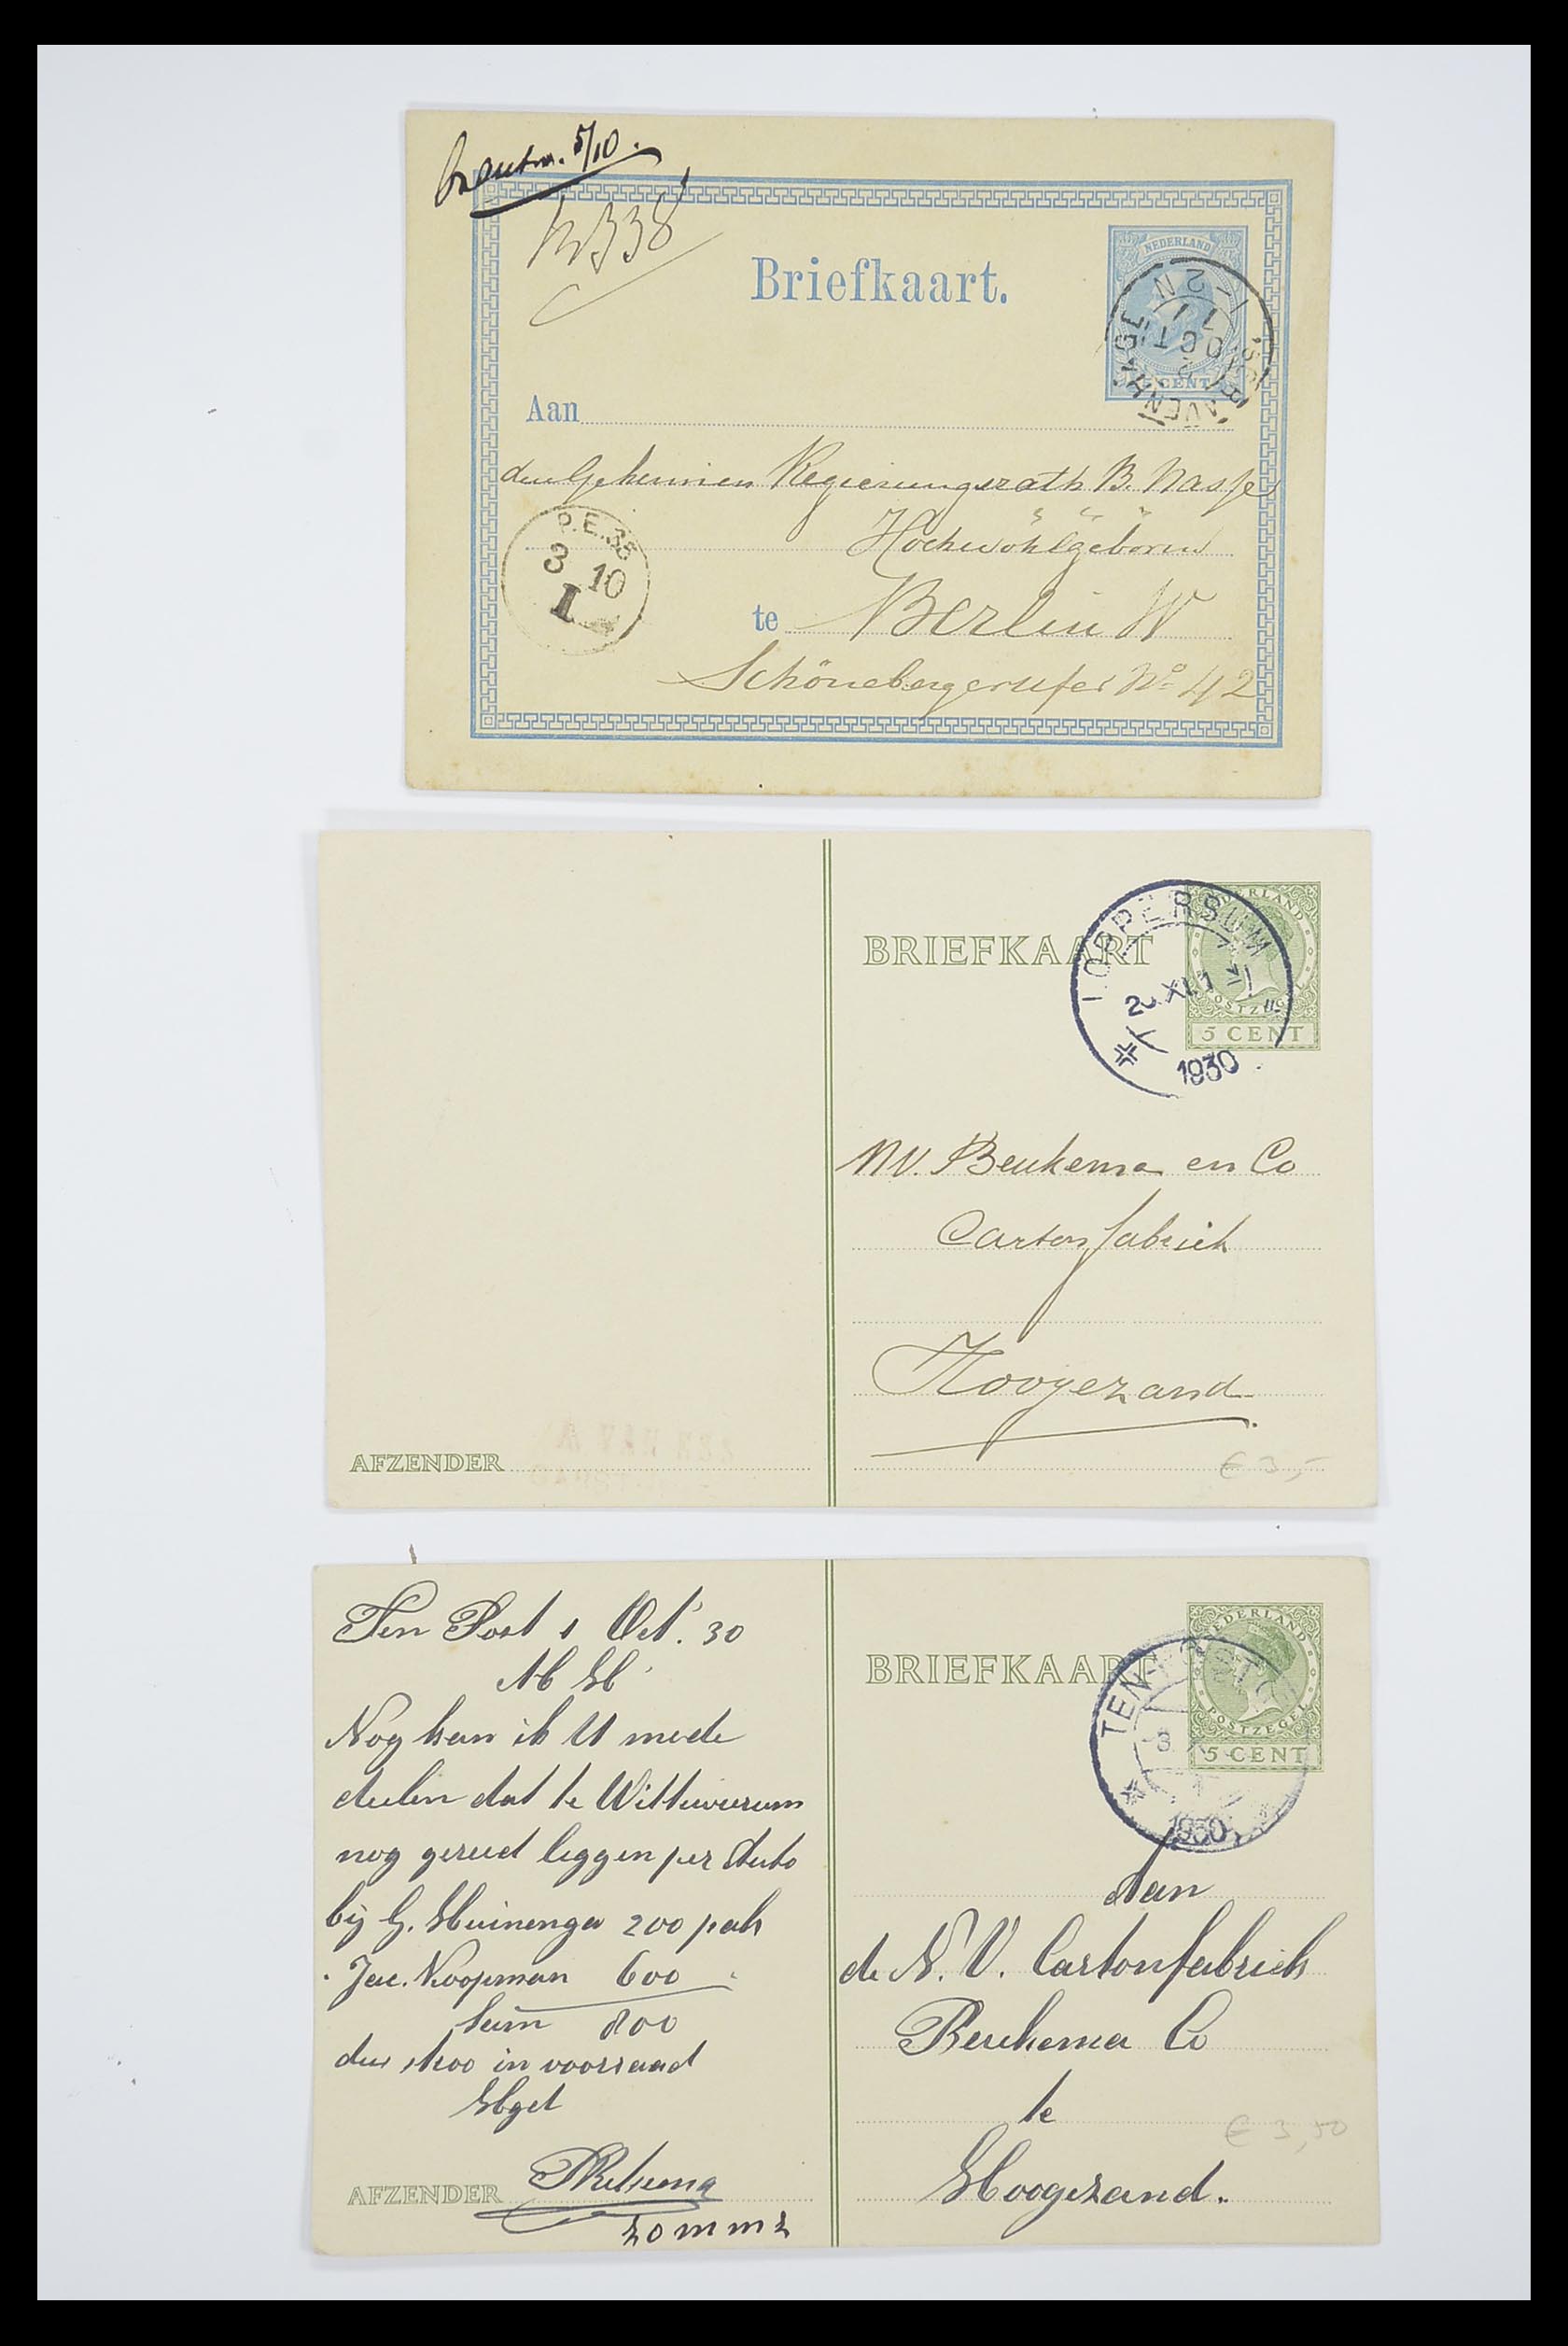 5/10.
Briefkaart.
NEDERLAND
CENT
'S GRAVENHAGE
2 OCT
Aan
den Geheimen Regierungsrath B. Nasse
Hochwohlgeboren
P.E.35
3 10
I
te Berlin W
Schönebergerufer No 42
BRIEFKAART
NEDERLAND
POSTZEGEL
5 CENT
LOPPERSUM
1930
NV. Beukema en Co
Cartonfabriek
Hoogezand
AFZENDER
€ 3,-
Ten Post 1 Oct. 30
M H
Nog kan ik U mede
deelen dat te Wittewierum
nog gereed leggen per Auto
bij G. Huinenga 200 pak
Jac. Koopman 600
Sum 800
dus stroo in voorraad
Hgd
AFZENDER
BRIEFKAART
NEDERLAND
POSTZEGEL
5 CENT
TEN-POST
1930
Aan
de N.V. Cartonfabriek
Beukema Co
te
Hoogezand.
€ 3,50